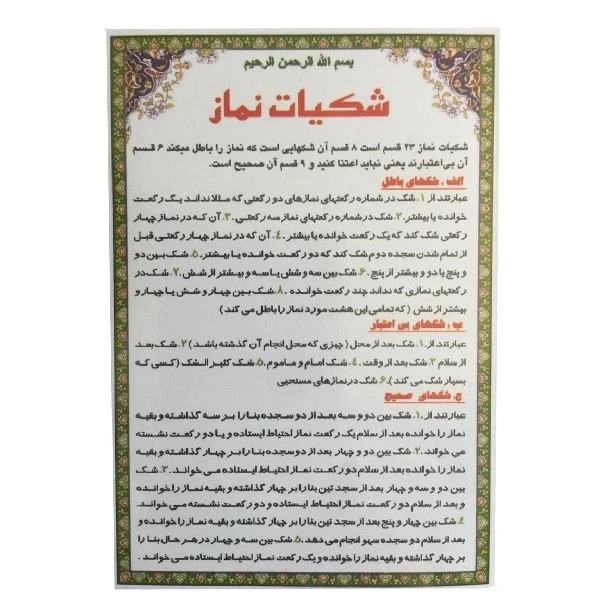 بسم الله الرحمن الرحیم
شکیات نماز
شکیات نماز ۲۳ قسم است ۸ قسم آن شکهایی است که نماز را باطل میکند ۶ قسم
آن بی‌اعتبارند یعنی نباید اعتنا کنید و ۹ قسم آن صحیح است.
الف : شکهای باطل
عبارتند از ۱. شک در شماره رکعتهای نمازهای دو رکعتی که مثلا نداند یک رکعت
خوانده یا بیشتر. ۲. شک در شماره رکعتهای نماز سه رکعتی. ۳. آن که در نماز چهار
رکعتی شک کند که یک رکعت خوانده یا بیشتر. ۴. آن که در نماز چهار رکعتی قبل
از تمام شدن سجده دوم شک کند که دو رکعت خوانده یا بیشتر. ۵. شک بین دو
و پنج یا دو و بیشتر از پنج. ۶. شک بین سه و شش یا سه و بیشتر از شش. ۷. شک در
رکعتهای نمازی که نداند چند رکعت خوانده . ۸. شک بین چهار و شش یا چهار و
بیشتر از شش ( که تمامی این هشت مورد نماز را باطل می کند )
ب : شکهای بی اعتبار
عبارتند از. ۱. شک بعد از محل ( چیزی که محل انجام آن گذشته باشد ) ۲. شک بعد
از سلام ۳. شک بعد از وقت . ۴. شک امام و ماموم. ۵. شک کثیر الشک ( کسی که
بسیار شک می کند ). ۶. شک در نمازهای مستحبی
ج. شکهای صحیح
عبارتند از ۱. شک بین دو و سه بعد از دو سجده بنا را بر سه گذاشته و بقیه
نماز را خوانده بعد از سلام یک رکعت نماز احتیاط ایستاده و یا دو رکعت نشسته
می خواند. ۲. شک بین دو و چهار بعد از دو سجده بنا را بر چهار گذاشته و بقیه
نماز را خوانده بعد از سلام دو رکعت نماز احتیاط ایستاده می خواند . ۳. شک
بین دو و سه و چهار بعد از سجدتین بنا را بر چهار گذاشته و بقیه نماز را خوانده
و بعد از سلام دو رکعت نماز احتیاط ایستاده و دو رکعت نشسته می خواند.
۴. شک بین چهار و پنج بعد از سجدتین بنا را بر چهار گذاشته و بقیه نماز را خوانده و
بعد از سلام دو سجده سهو انجام می دهد. ۵. شک بین سه و چهار در هر حال بنا را
بر چهار گذاشته و بقیه نماز را خوانده و یک رکعت نماز احتیاط ایستاده می خواند .